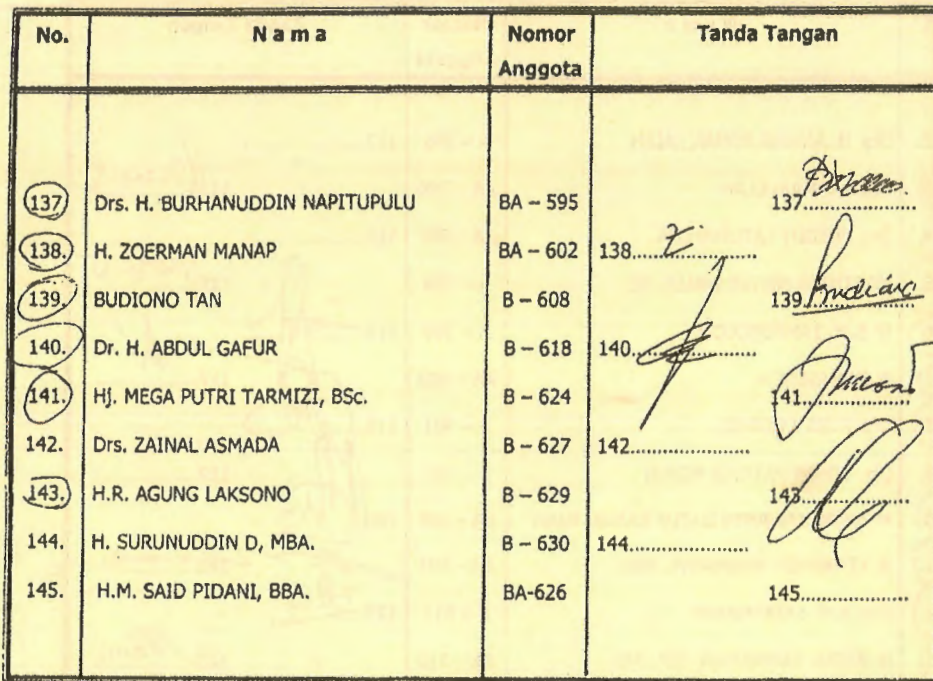 No. N a m a Nomor Anggota Tanda Tangan
137. Drs. H. BURHANUDDIN NAPITUPULU BA – 595 137..............
138. H. ZOERMAN MANAP BA – 602 138..............
139. BUDIONO TAN B – 608 139..............
140. Dr. H. ABDUL GAFUR B – 618 140..............
141. Hj. MEGA PUTRI TARMIZI, BSc. B – 624 141..............
142. Drs. ZAINAL ASMADA B – 627 142..............
143. H.R. AGUNG LAKSONO B – 629 143..............
144. H. SURUNUDDIN D, MBA. B – 630 144..............
145. H.M. SAID PIDANI, BBA. BA-626 145..............